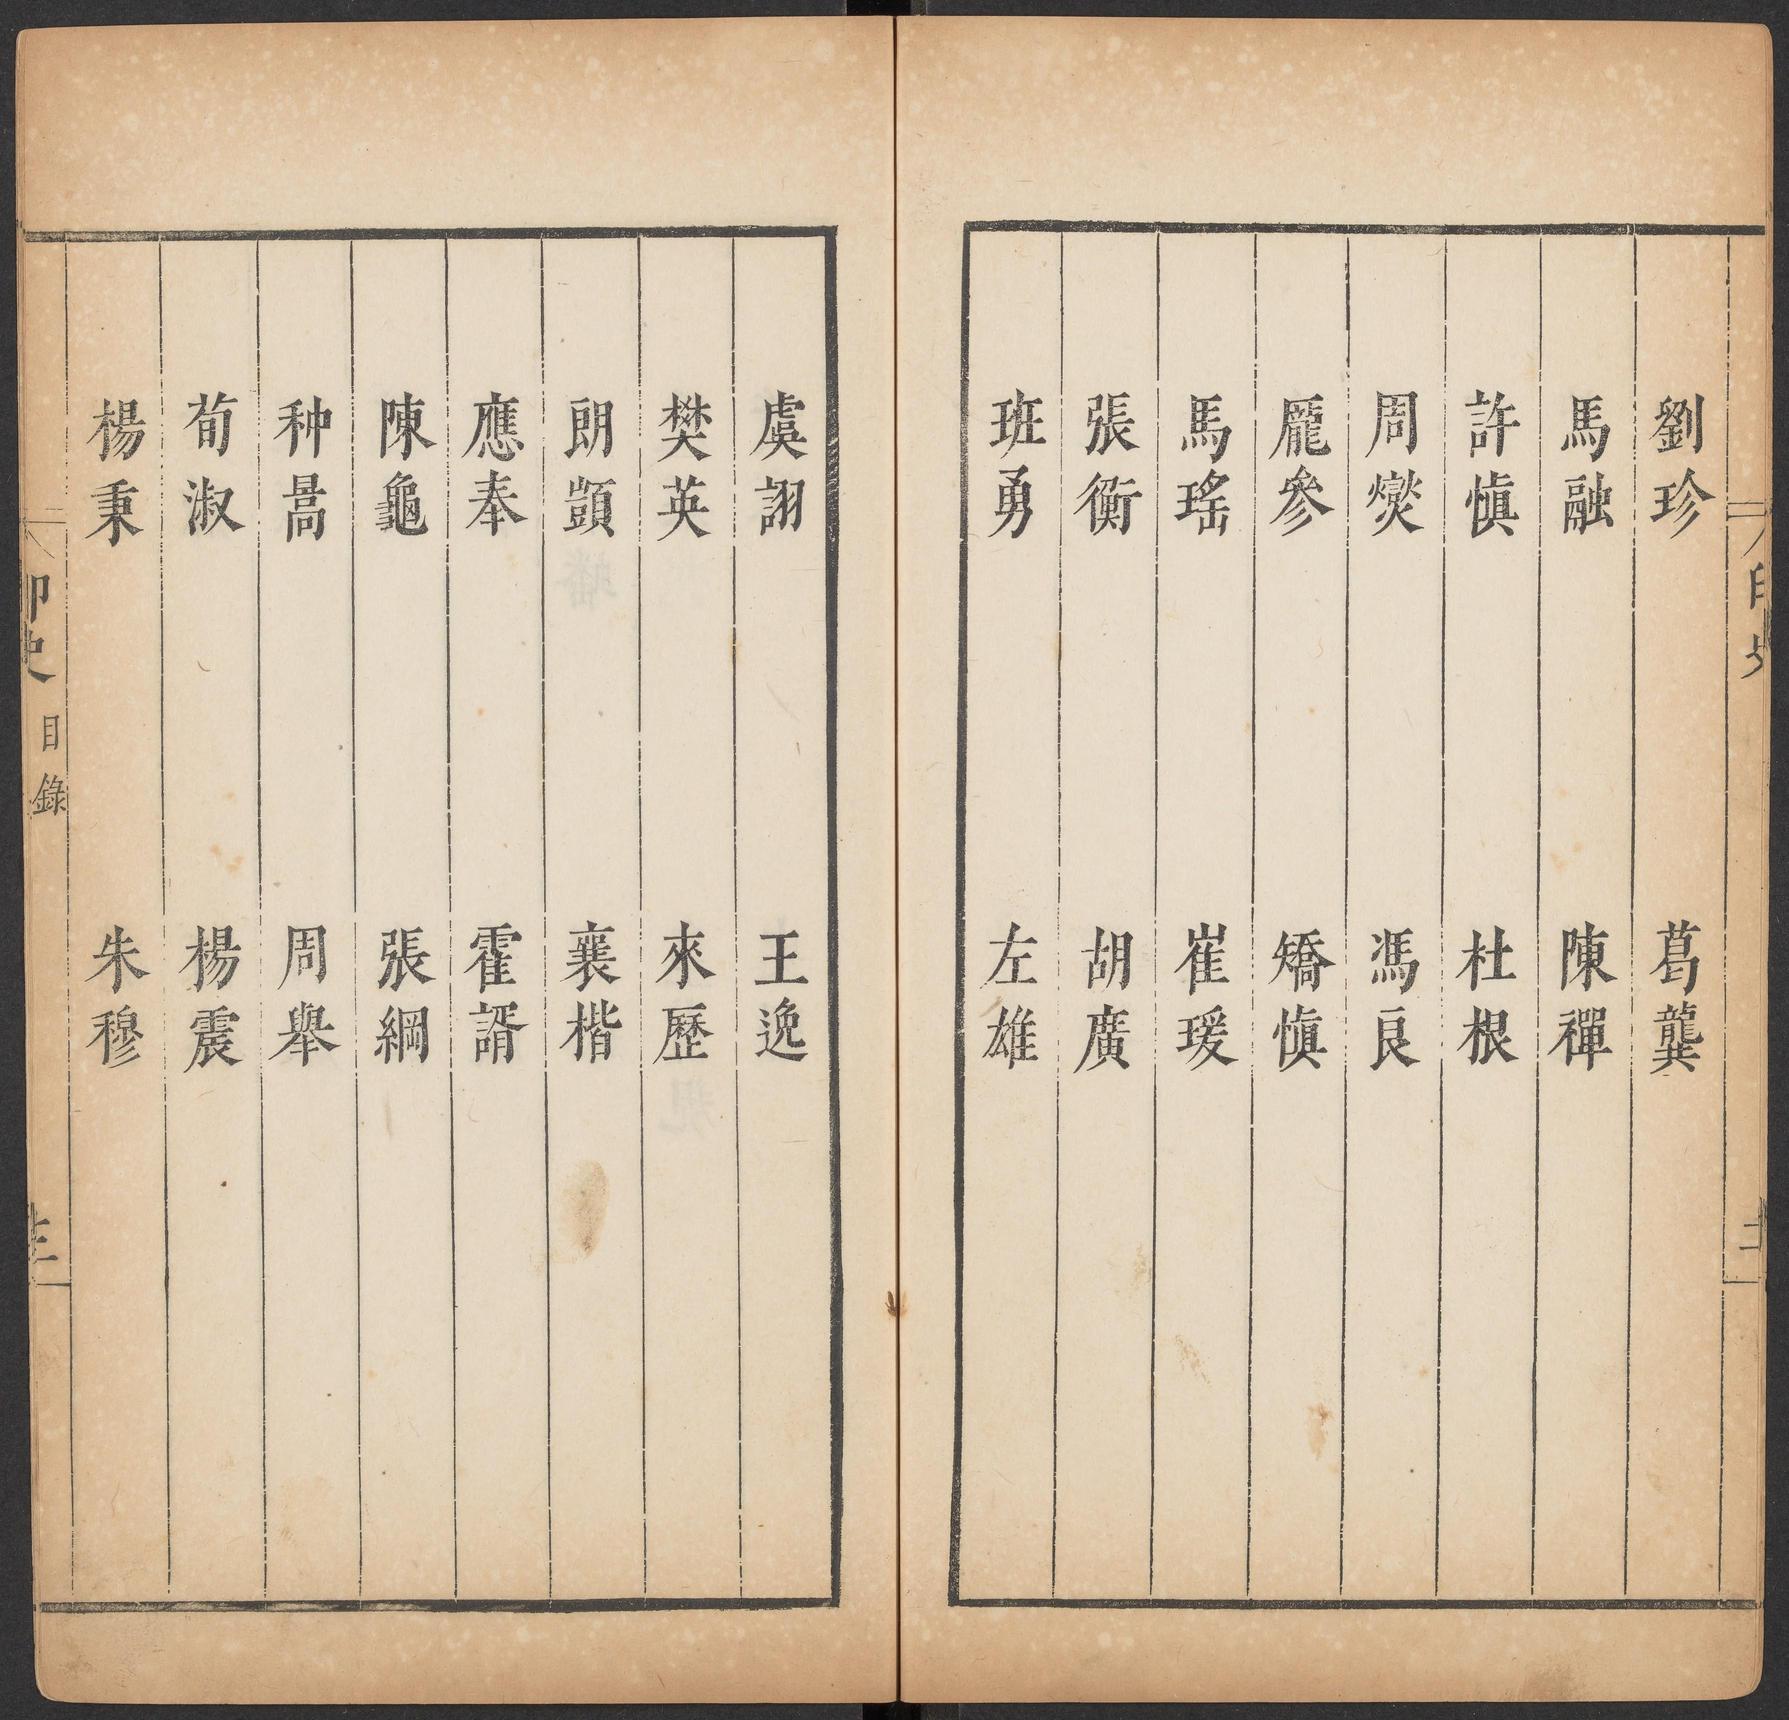 劉珍 葛龔
馬融 陳禪
許慎 杜根
周燮 馮良
龐參 矯慎
馬瑤 崔瑗
張衡 胡廣
班勇 左雄
虞詡 王逸
樊英 來歷
朗顗 襄楷
應奉 霍諝
陳龜 張綱
种暠 周舉
荀淑 楊震
楊秉 朱穆
印史 目錄